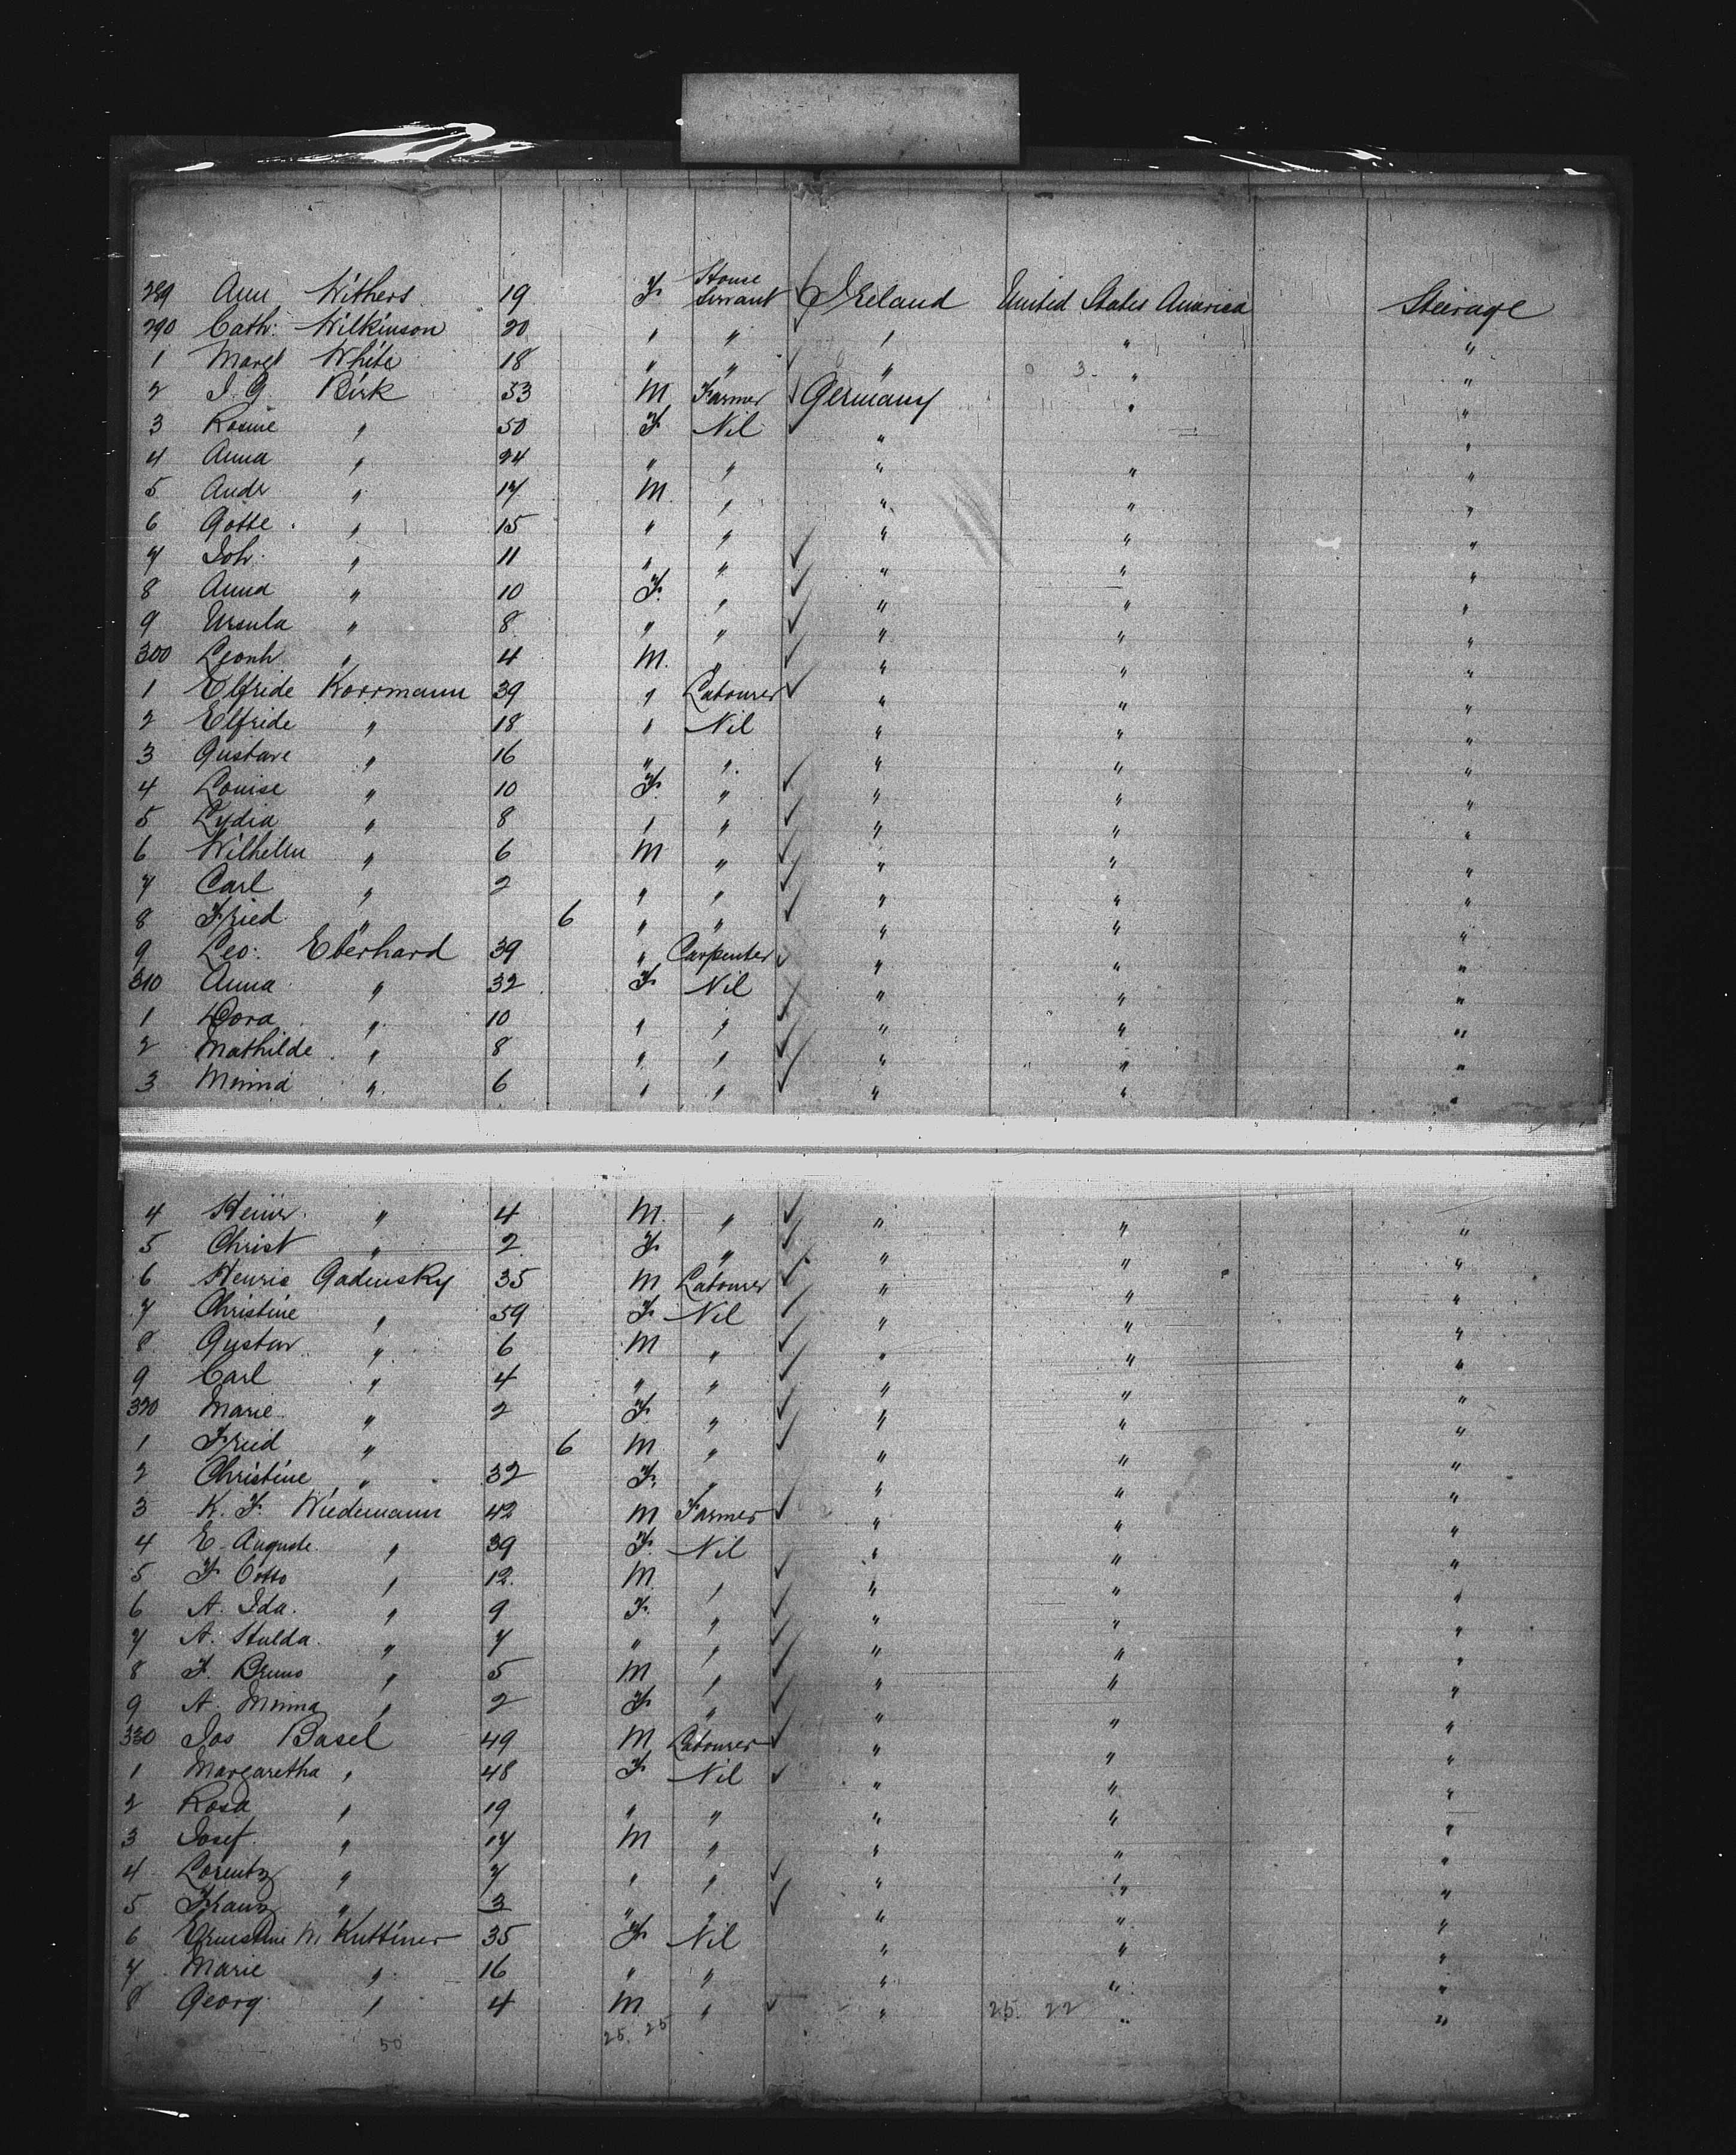 289 Ann Withers 19 F House Servant Ireland United States America Steerage
290 Cath: Wilkinson 20 " " " " "
1 Margt White 18 " " " 0 3 " "
2 J. G. Birk 53 M Farmer Germany " "
3 Rosine " 50 F Nil " "
4 Anna " 24 " " " " "
5 Andr " 17 M " " " "
6 Gotte " 15 " " " " "
7 Joh: " 11 " " " " "
8 Anna " 10 F. " " " "
9 Ursula " 8 " " " " "
300 Leonh " 4 M. " " " "
1 Elfride Korrmann 39 " Labourer " " "
2 Elfride " 18 " Nil " " "
3 Gustave " 16 " " " " "
4 Louise " 10 F. " " " "
5 Lydia " 8 " " " " "
6 Wilhelm " 6 M " " " "
7 Carl " 2 " " " " "
8 Fried " 6 " " " " "
9 Leo: Eberhard 39 " Carpenter " " "
310 Anna " 32 F Nil " " "
1 Dora " 10 " " " " "
2 Mathilde " 8 " " " " "
3 Minna " 6 " " " " "
4 Heinr. " 4 M. " " " "
5 Christ " 2 F. " " " "
6 Henrie Gadinsky 35 M Labourer " " "
7 Christine " 59 F. Nil " " "
8 Gustav " 6 M " " " "
9 Carl " 4 " " " " "
320 Marie " 2 F. " " " "
1 Fried " 6 M " " " "
2 Christine " 32 F. " " " "
3 K. F. Wiedemann 42 M Farmer " " "
4 E. Auguste " 39 F. Nil " " "
5 F. Otto " 12. M " " " "
6 A. Ida. " 9 F. " " " "
7 A. Hulda. " 7 " " " " "
8 F. Bruno " 5 M " " " "
9 A. Minna " 2 F. " " " "
330 Jos Basel 49 M Labourer " " "
1 Margaretha " 48 F Nil " " "
2 Rosa " 19 " " " " "
3 Josef " 17 M " " " "
4 Lorentz " 7 " " " " "
5 Franz " 3 " " " " "
6 Ernestine M. Kuttiner 35 F Nil " " "
7 Marie " 16 " " " " "
8 Georg " 4 M " " 25. 22 " "
50 25. 25